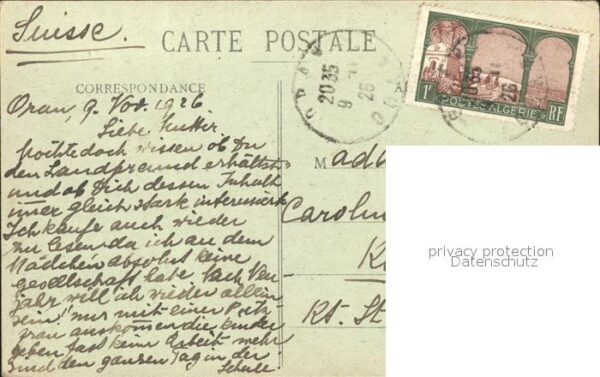 Suisse.
CARTE POSTALE
CORRESPONDANCE
Oran, 9. Nov. 1926
Liebe Mutter.
Möchte doch wissen ob Du
den Landfreund erhältst
und ob Dich dessen Inhalt
imer gleich stark
Ich kaufe auch wieder
zu lesen da ich an dem
Mädchen absolut keine
gesellschaft habe Nach Neu
jahr will ich wieder allein
sein" nur mit einer Putz
frau auskommen die kinder
geben fast keine Arbeit mehr
sind den ganzen Tag in der
Schule
ORAN
20 35
9 11
26
ORAN
1F POSTES ALGERIE RF
Mad
Carolin
K
Kt. St
privacy protection
Datenschutz